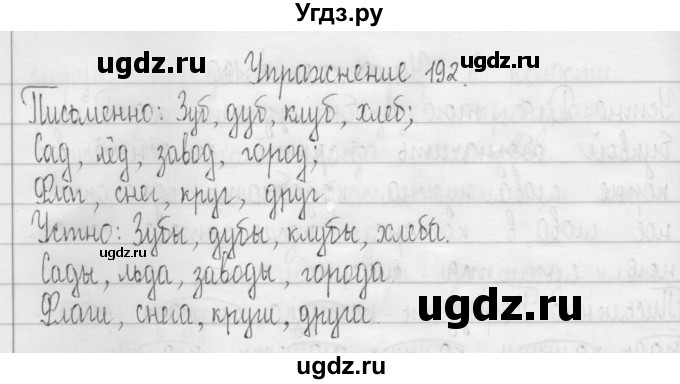 Угдз.ру
ugdz.ru ugdz.ru
Упражнение 192.
Письменно: Зуб, дуб, клуб, хлеб;
Сад, лёд, завод, город;
Флаг, снег, круг, друг.
Устно: Зубы, дубы, клубы, хлеба.
Сады, льда, заводы, города.
Флаги, снега, круги, друга.
ugdz.ru ugdz.ru
ugdz.ru